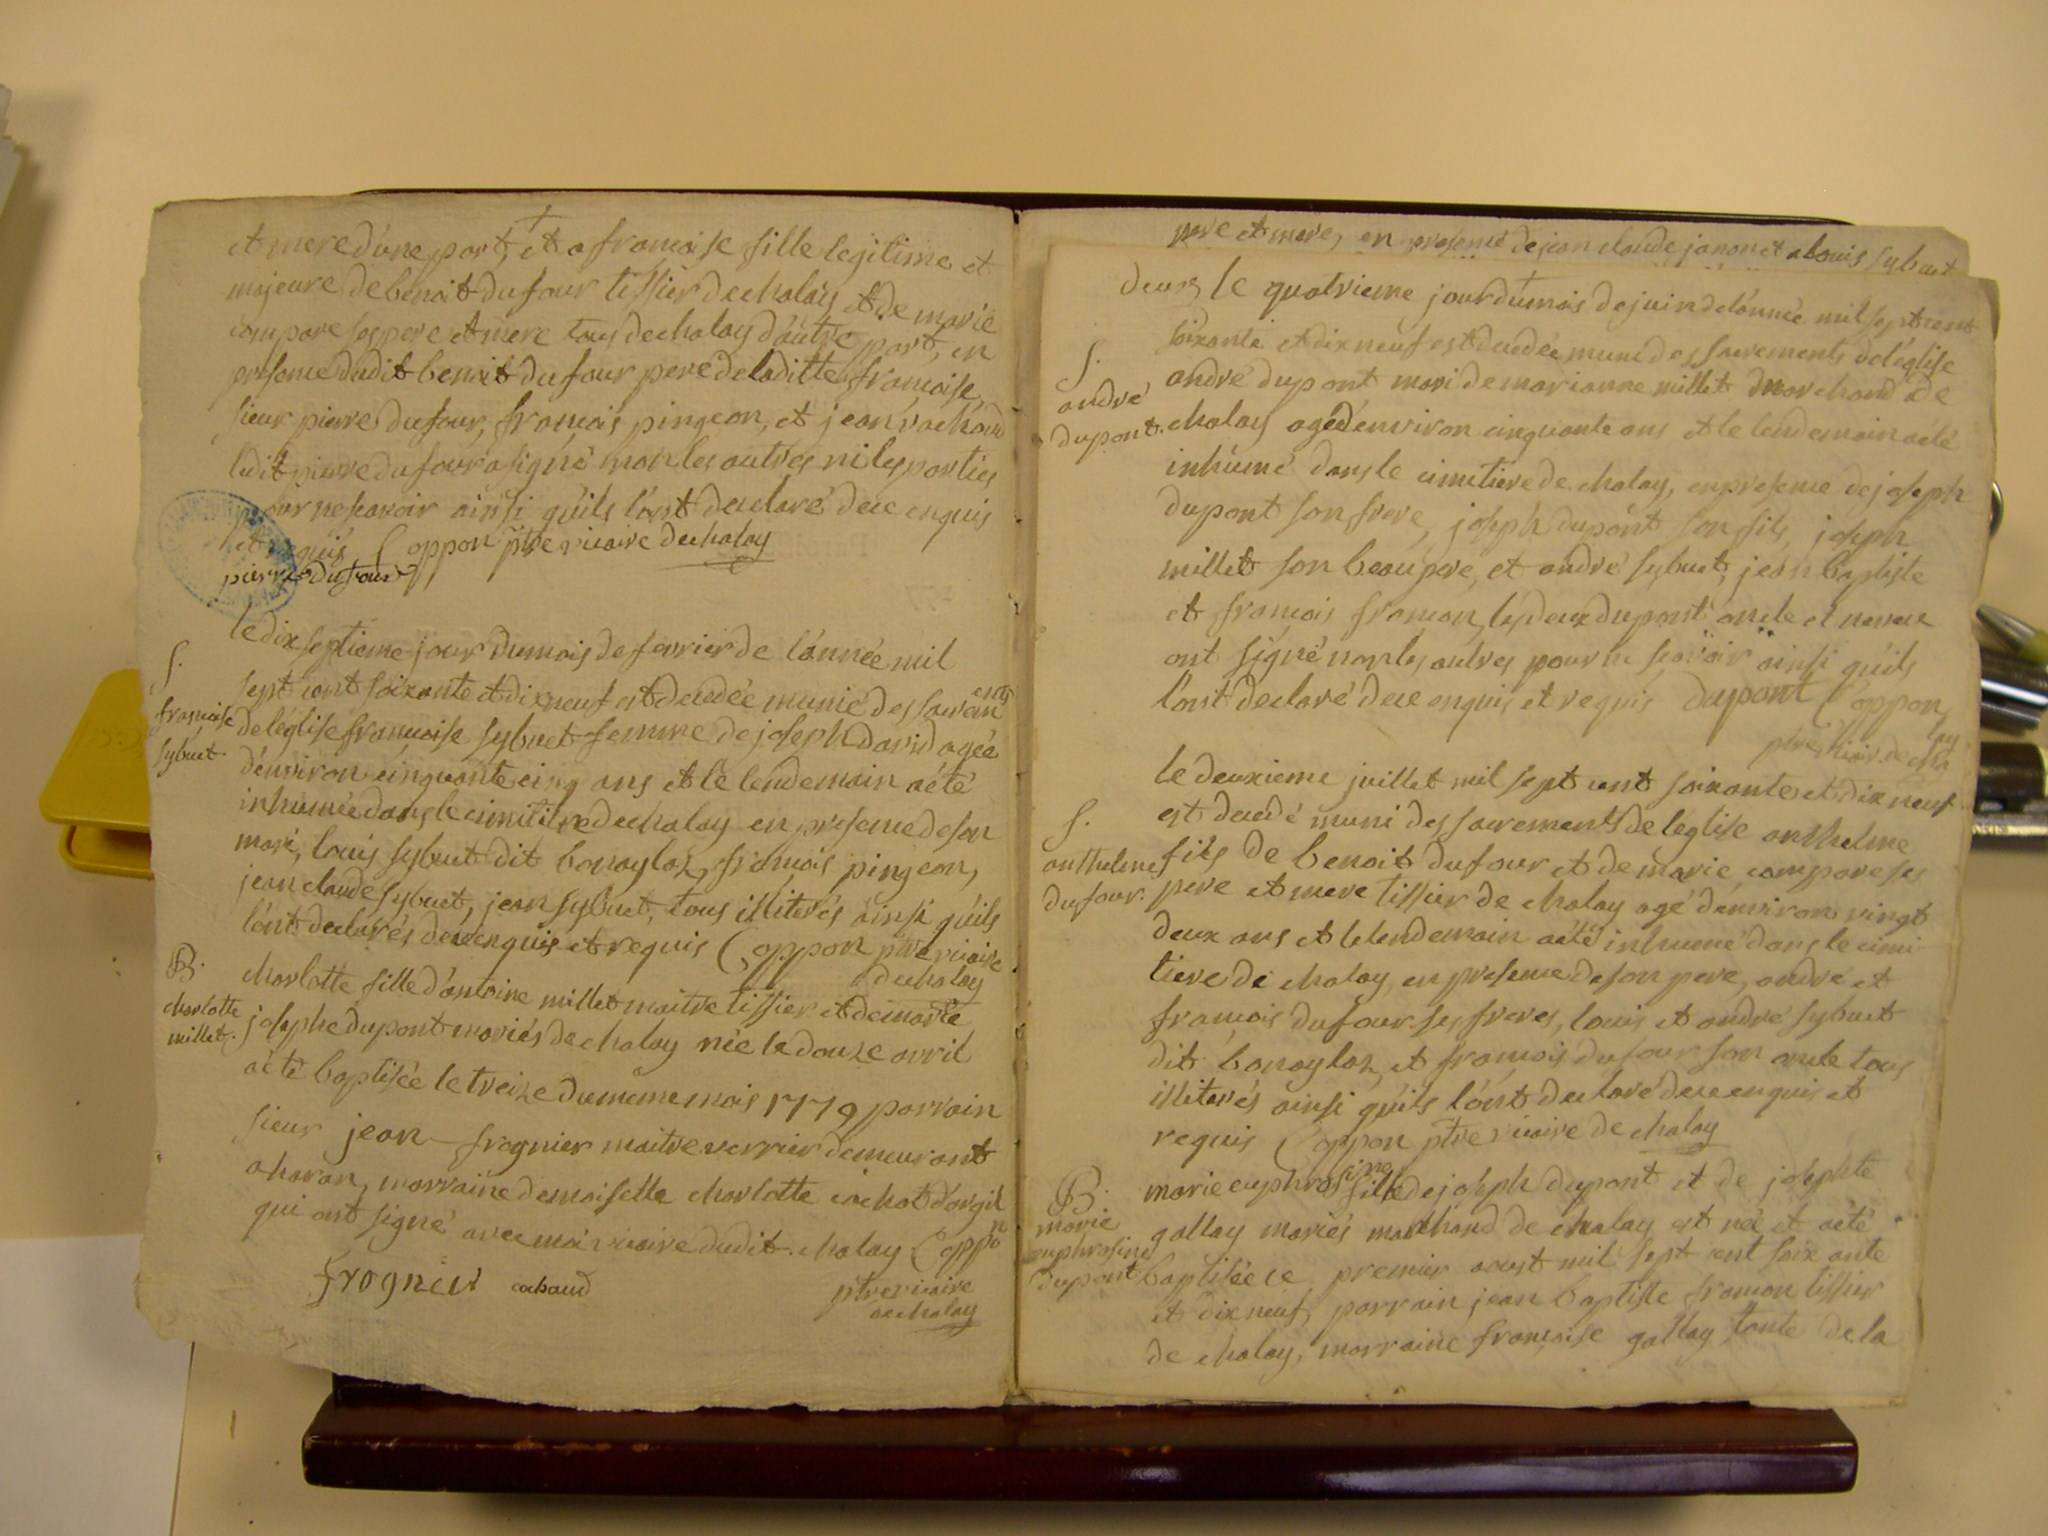 et mere d'une part, et a francoise fille legitime et
majeure de benoit dufour tissier de chaley et de marie
compare ses pere et mere tous de chaley d'autre part, en
presence dudit benoit dufour pere de laditte francoise,
sieur pierre dufour, francois pingeon, et jean vachard
ledit pierre dufour a signé non les autres ni les parties
pour ne scavoir ainsi qu'ils l'ont declaré de ce enquis
et requis Coppon ptre vicaire de chaley
pierre dufour
le dix septieme jour du mois de fevrier de l'année mil
sept cent soixante et dix neuf est decedée munie des sacremens
S.
francoise
sybuet
de l'église francoise sybuet femme de joseph david agée
d'environ cinquante cinq ans et le lendemain a été
inhumée dans le cimitière de chaley en presence de son
mari, louis sybuet dit bonaylaz, francois pingeon,
jean claude sybuet, jean sybuet, tous illiterés ainsi qu'ils
l'ont declarés de ce enquis et requis Coppon ptre vicaire
de chaley
B.
charlotte
millet.
charlotte fille d'antoine millet maitre tissier et de marie
josephe dupont mariés de chaley née le douze avril
a été baptisée le treize du meme mois 1779 parrain
sieur jean frognier maitre verrier demeurant
a haran, marraine demoiselle charlotte cachot d'orgit
qui ont signé avec moi vicaire dudit chaley Coppon
frognier cachaud ptre vicaire
de chaley
pere et mere, en presence de jean claude janon et a louis sybuet
deux le quatrieme jour du mois de juin de l'année mil sept cent
soixante et dix neuf est decedée muni des sacrements de l'église
S.
andré
dupont.
andré dupont mari de marianne millet marchand de
chaley agé d'environ cinquante ans et le lendemain a été
inhumé dans le cimetiere de chaley, en presence de joseph
dupont son frere, joseph dupont son fils, joseph
millet son beaupere, et andré sybuet, jean baptiste
et francois framon, les deux dupont oncle et neveu
ont signé non les autres pour ne scavoir ainsi qu'ils
l'ont declaré de ce enquis et requis dupont Coppon
ptre vicair. de cha
ley
le deuxieme juillet mil sept cent soixante et dix neuf
est decedé muni des sacrements de l'eglise anthelme
S.
anthelme
dufour.
fils de benoit dufour et de marie compare ses
pere et mere tissier de chaley agé d'environ vingt
deux ans et le lendemain a été inhumé dans le cimi
tiere de chaley en presence de son pere, andré et
francois dufour ses freres, louis et andré sybuet
dit bonaylaz, et francois dufour son oncle tous
illiterés ainsi qu'ils l'ont declaré de ce enquis et
requis Coppon ptre vicaire de chaley
B.
marie
euphrosine
dupont
marie euphrosine fille de joseph dupont et de josephte
gallay mariés marchand de chaley est née et a été
baptisée ce premier aoust mil sept cent soixante
et dix neuf, parrain jean baptiste framon tissier
de chaley, marraine francoise gallay tante de la